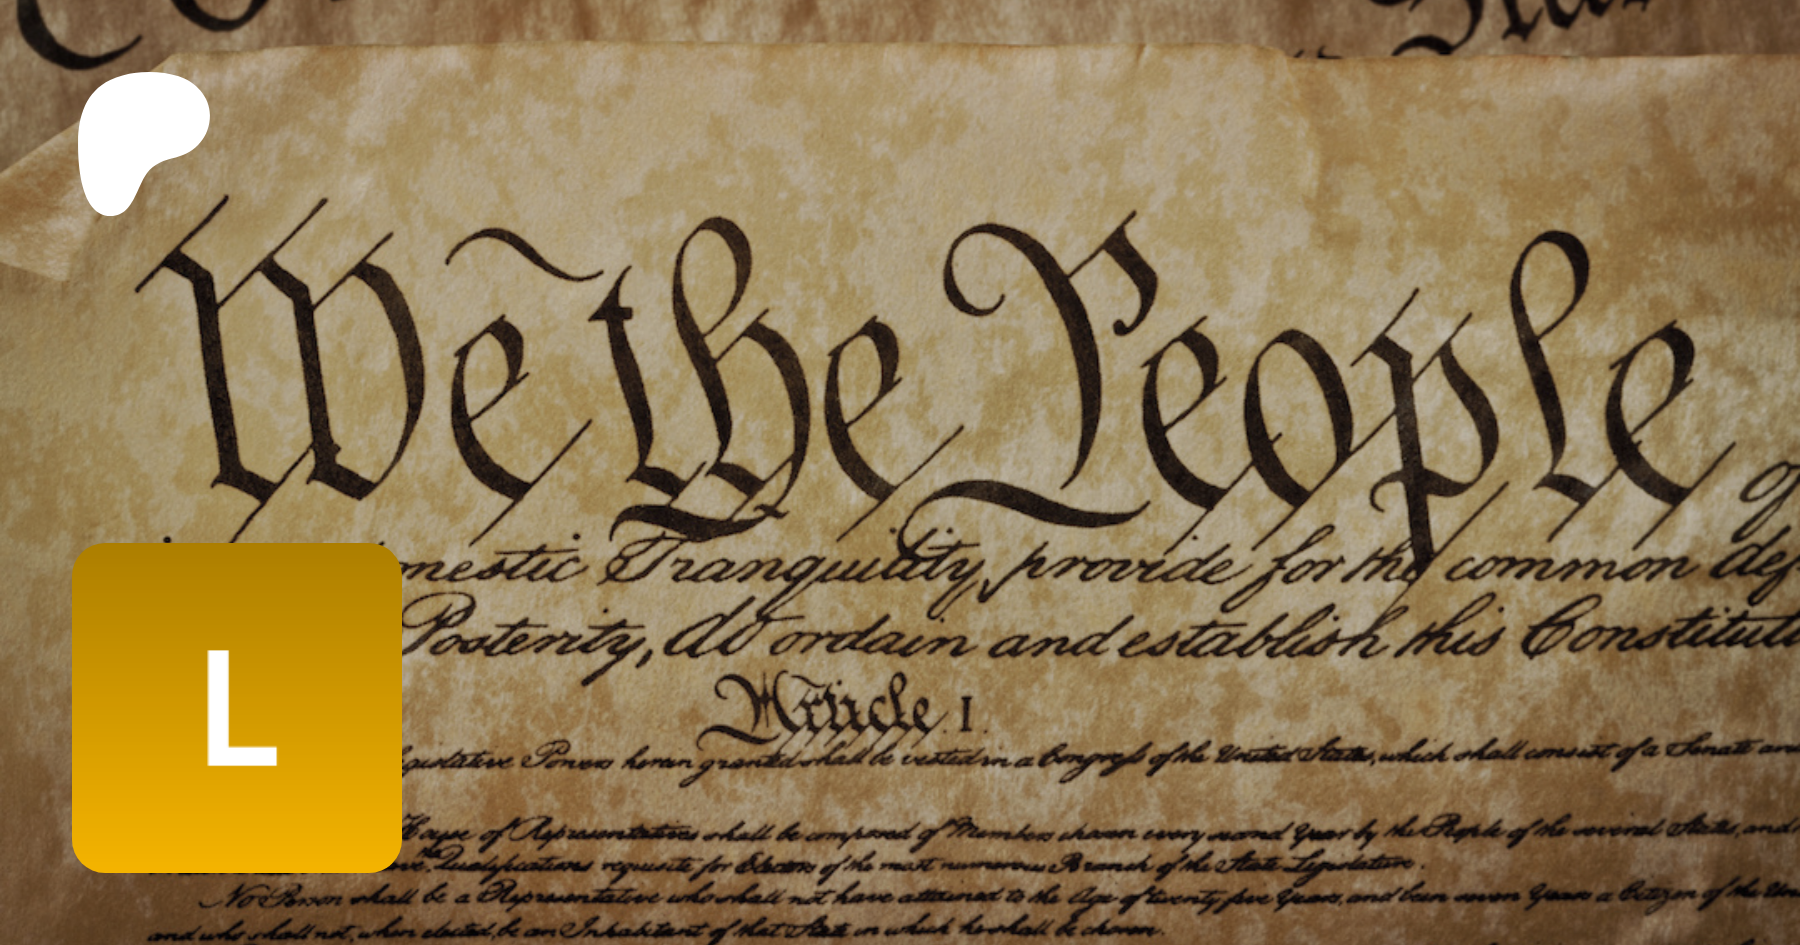 We the People of
mestic Tranquility, provide for the common def
Posterity, do ordain and establish this Constituti
Article. I.
gislative Powers herein granted shall be vested in a Congress of the United States, which shall consist of a Senate and
House of Representatives shall be composed of Members chosen every second Year by the People of the several States, and
Qualifications requisite for Electors of the most numerous Branch of the State Legislature.
No Person shall be a Representative who shall not have attained to the Age of twenty five Years, and been seven Years a Citizen of the Uni
and who shall not, when elected, be an Inhabitant of that State in which he shall be chosen.
L